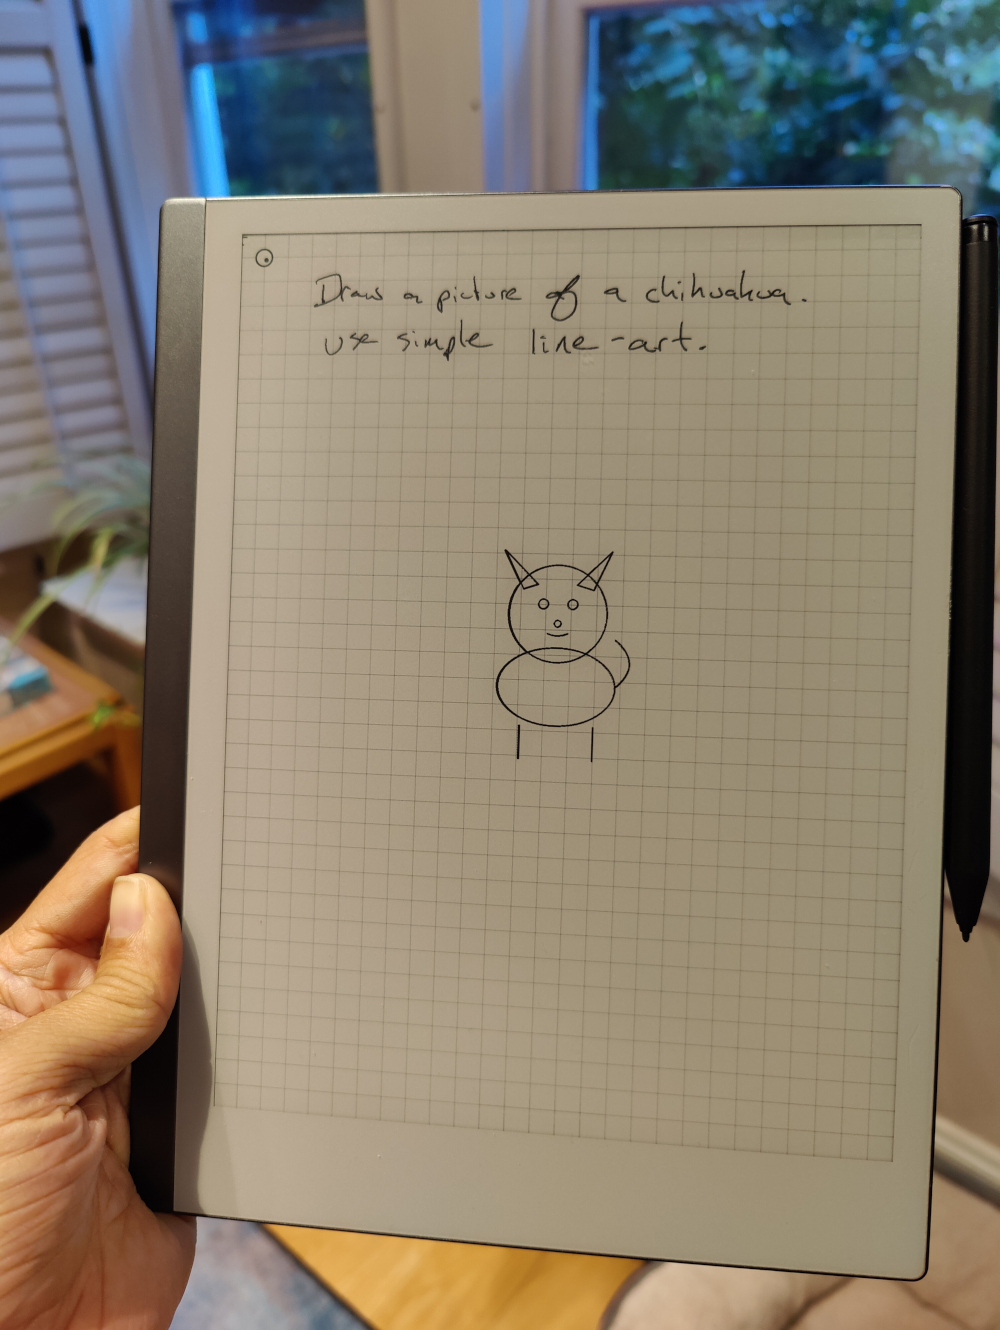 Draw a picture of a chihuahua.
use simple line-art.